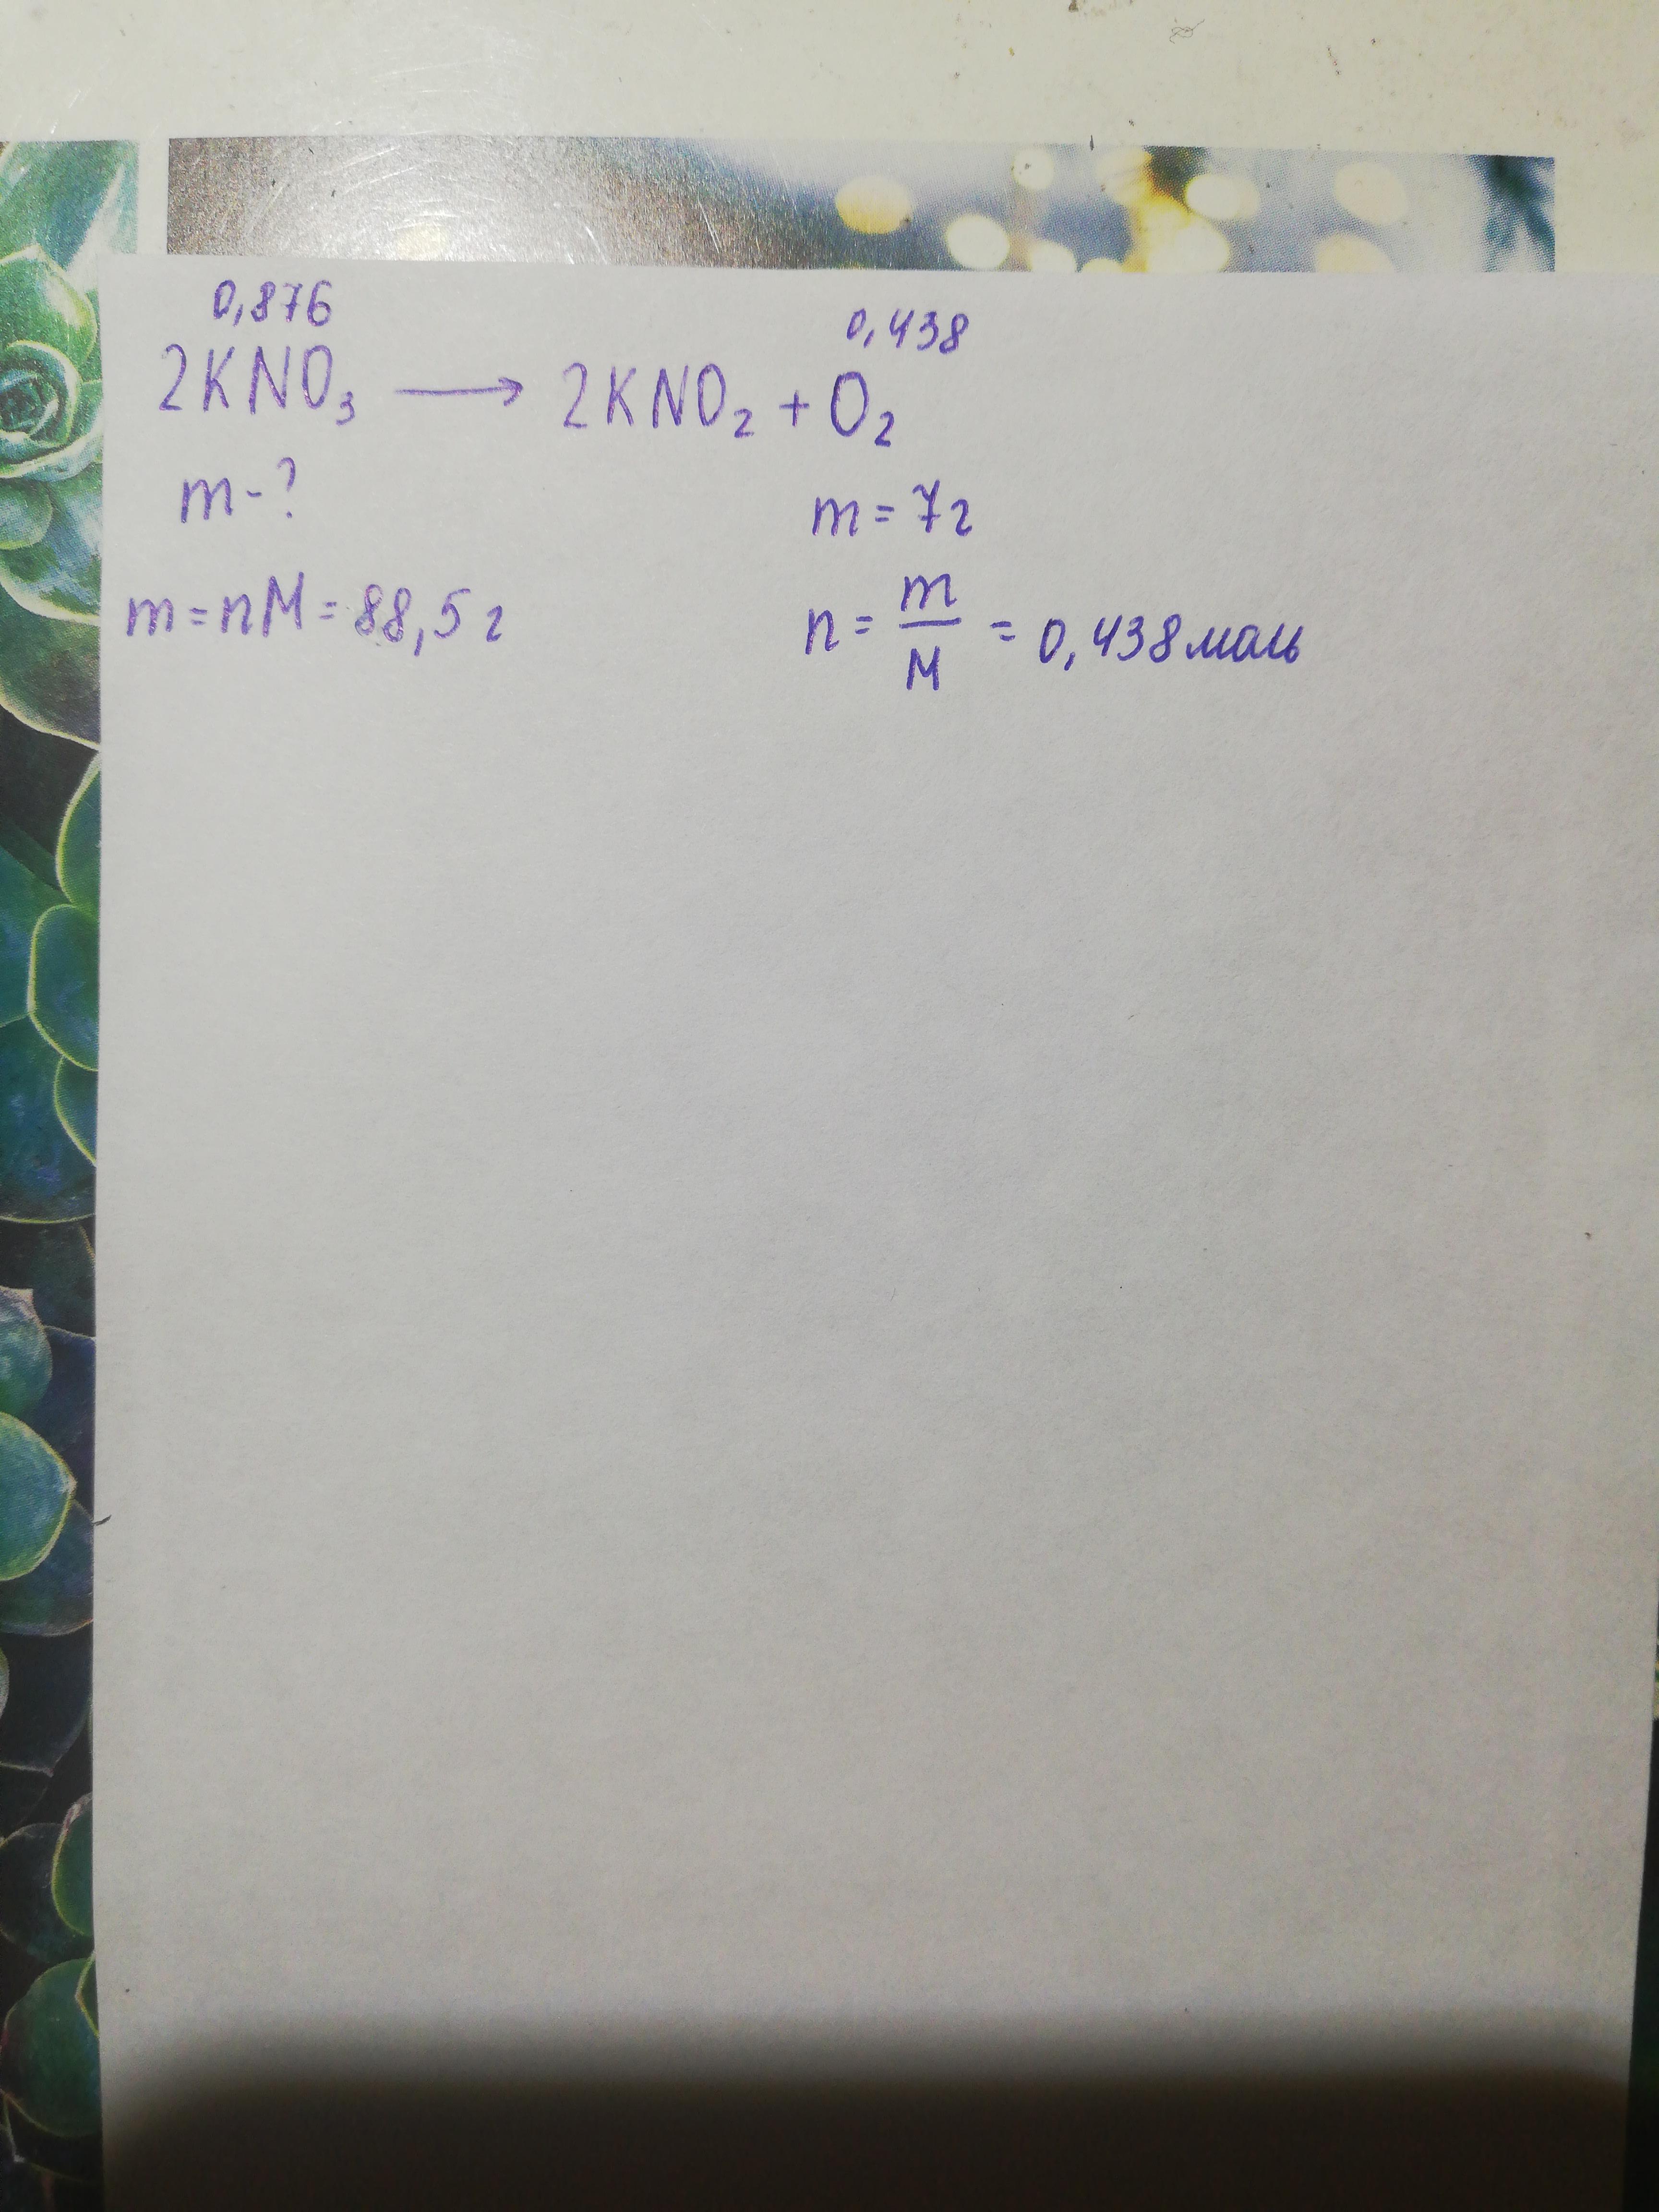 0,876 0,438
2KNO₃ ⟶ 2KNO₂ + O₂
m-? m = 7г
m = nM = 88,5 г n = m/M = 0,438 моль